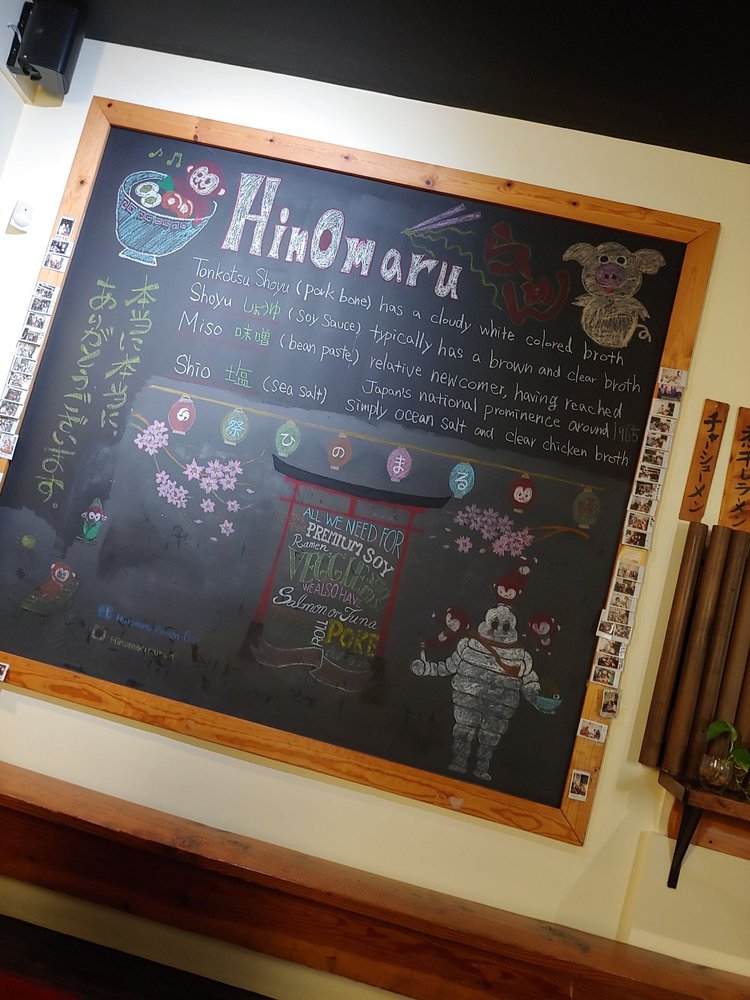 HinOmaru
Tonkotsu Shoyu (pork bone) has a cloudy white colored broth
Shoyu しょうゆ (soy Sauce) typically has a brown and clear broth
Miso 味噌 (bean paste) relative newcomer, having reached
Japan's national prominence around 1965
Shio 塩 (sea salt) simply ocean salt and clear chicken broth
本当に本当に
祭ひのまる
ALL WE NEED FOR
PREMIUM SOY
Ramen
VEGGIE
WE ALSO HAVE
Salmon or Tuna
ROLL
POKE
Hinomaru Ramen
チャーシューメン